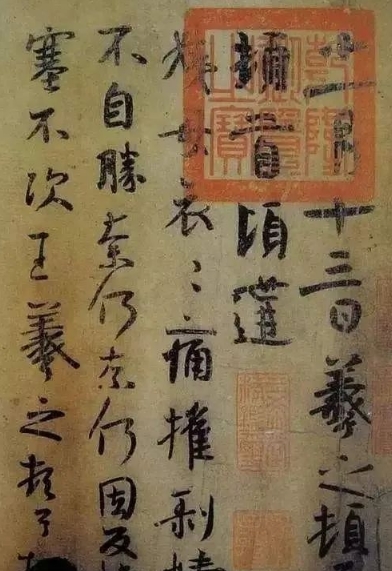 十一月十三日羲之頓
頓首頃遘
姨母哀〻痛摧剝情
不自勝奈何奈何因反
塞不次王羲之頓首
乾隆御覽之寶